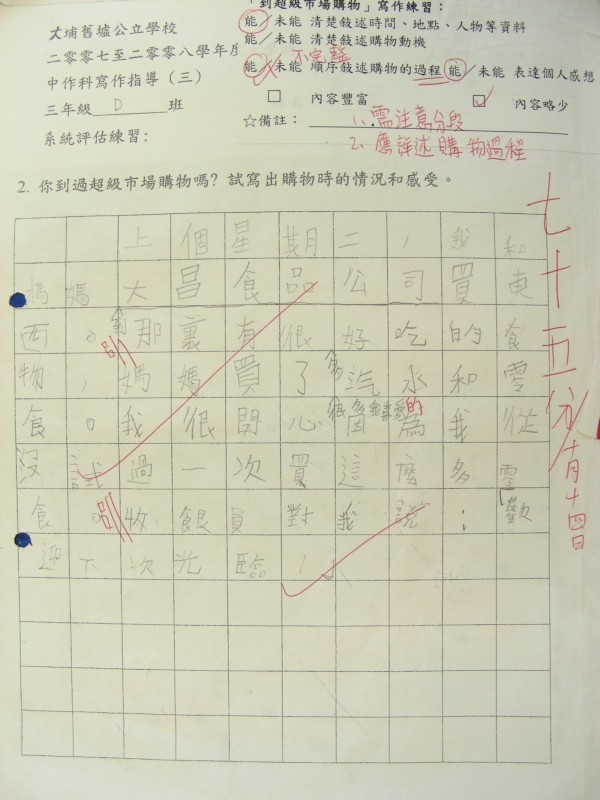 大埔舊墟公立學校
二零零七至二零零八學年度
中作科寫作指導（三）
三年級 D 班
系統評估練習：
「到超級市場購物」寫作練習：
能／未能 清楚敍述時間、地點、人物等資料
能／未能 清楚敍述購物動機
不完整
能／未能 順序敍述購物的過程 能／未能 表達個人感想
內容豐富 內容略少
☆備註：1. 需注意分段
2. 應詳述購物過程
2. 你到過超級市場購物嗎？試寫出購物時的情況和感受。
上個星期二，我和
媽媽大昌食品公司買東
西。那裏有很好吃的食
物，媽媽買了汽水和零
食。我很開心因為我從
沒試過一次買這麼多零
食。收銀員對我說：歡
迎下次光臨！
七十五分
十月十四日